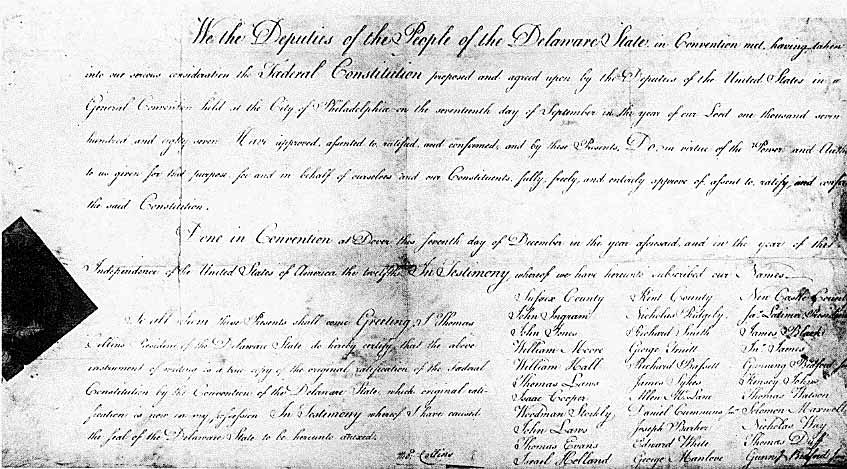 We the Deputies of the People of the Delaware State, in Convention met, having taken
into our serious consideration the Fœderal Constitution proposed and agreed upon by the Deputies of the United States in a
General Convention held at the City of Philadelphia on the seventeenth day of September in the year of our Lord one thousand seven
hundred and eighty seven Have approved, assented to, ratified, and confirmed, and by these Presents, Do, in virtue of the Power and
to us given for that purpose, for and in behalf of ourselves and our Constituents, fully, freely, and entirely approve of, assent to, ratify, and
the said Constitution.
Done in Convention at Dover this seventh day of December in the year aforesaid, and in the year of the
Independence of the United States of America the twelfth. In Testimony whereof we have hereunto subscribed our Names.
To all whom these Presents shall come Greeting, I Thomas
Collins President of the Delaware State do hereby certify, that the above
instrument of writing is a true copy of the original ratification of the Fœderal
Constitution by the Convention of the Delaware State, which original rati-
fication is now in my possession. In Testimony whereof I have caused
the seal of the Delaware State to be hereunto annexed.
Thos Collins
Sussex County
John Ingram
John Jones
William Moore
William Hall
Thomas Laws
Isaac Cooper
Woodman Storkly
John Laws
Thomas Evans
Israel Holland
Kent County
Nicholas Ridgely
Richard Smith
George Truitt
Richard Bassett
James Sykes
Allen McLane
Daniel Cummins
Joseph Barker
Edward White
George Manlove
New Castle County
Jas Latimer President
James Black
Jno James
Gunning Bedford
Kensey Johns
Thomas Watson
Solomon Maxwell
Nicholas Way
Thomas Duff
Gunng Bedford